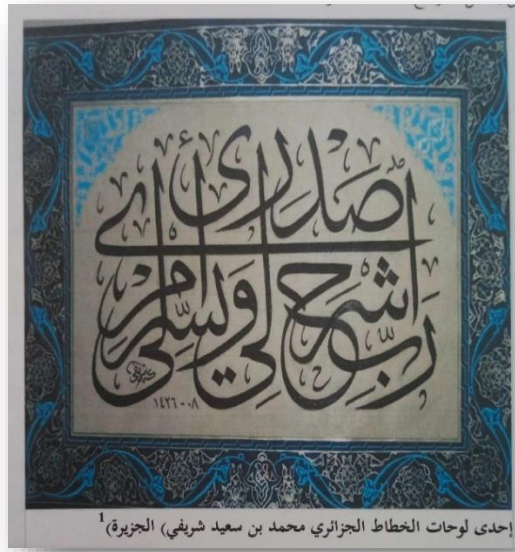 رَبِّ اشْرَحْ لِي صَدْرِي وَيَسِّرْ لِي أَمْرِي
١٤٢٦-٠٨
إحدى لوحات الخطاط الجزائري محمد بن سعيد شريفي) الجزيرة)1